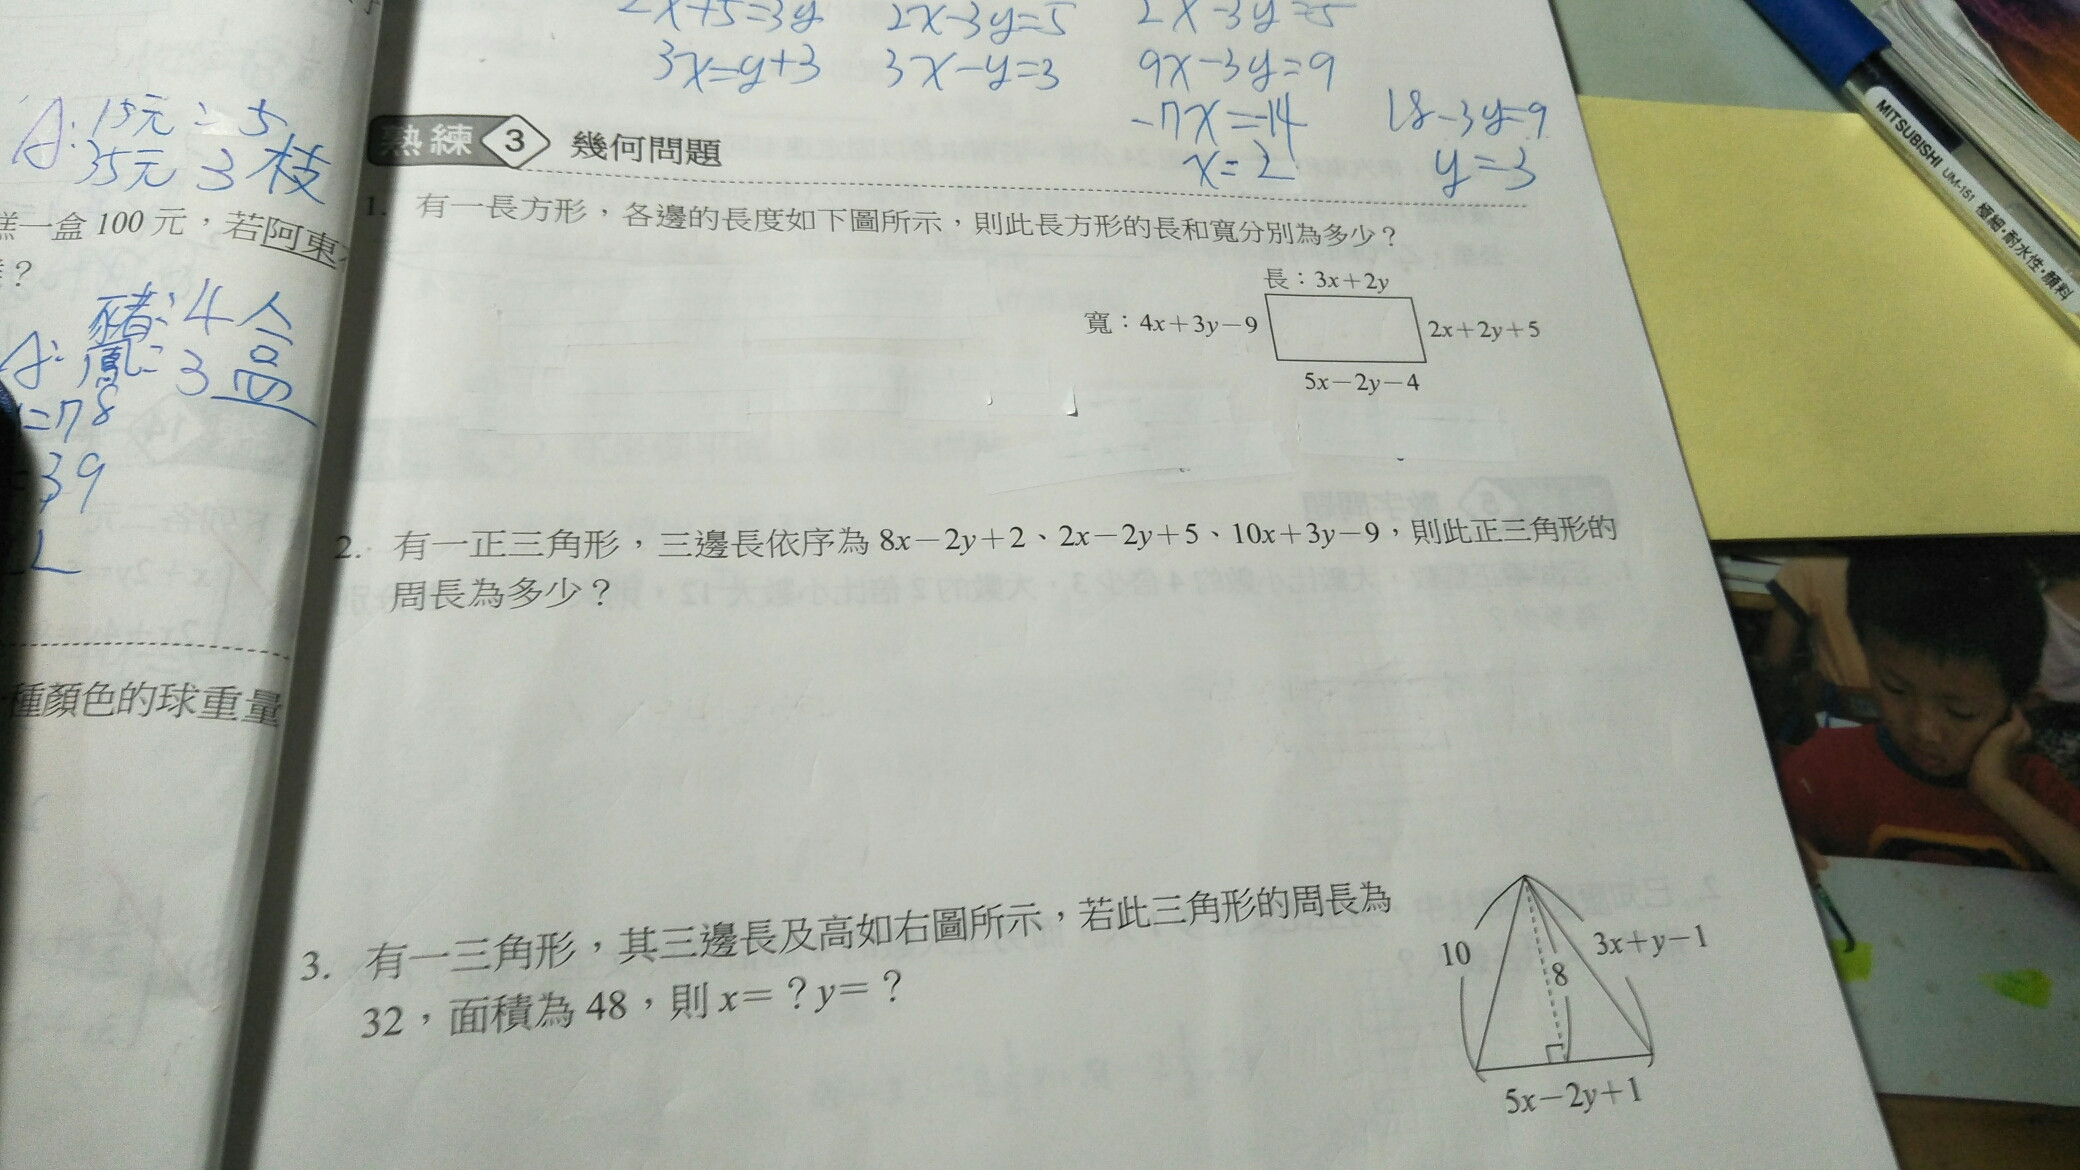 2x+5=3y 2x-3y=5 2x-3y=5
3x=y+3 3x-y=3 9x-3y=9
-7x=-14 18-3y=9
x=2 y=3
A:15元:5
35元 3 枝
糕一盒 100 元，若阿東
？
豬:4 盒
A: 鳳:3
=78
39
熟練 3 幾何問題
1. 有一長方形，各邊的長度如下圖所示，則此長方形的長和寬分別為多少？
長：3x＋2y
寬：4x＋3y－9
2x＋2y＋5
5x－2y－4
2. 有一正三角形，三邊長依序為 8x－2y＋2、2x－2y＋5、10x＋3y－9，則此正三角形的
周長為多少？
種顏色的球重量
3. 有一三角形，其三邊長及高如右圖所示，若此三角形的周長為
32，面積為 48，則 x＝？y＝？
10
8
3x＋y－1
5x－2y＋1
MITSUBISHI UM-151 極細・耐水性・顏料